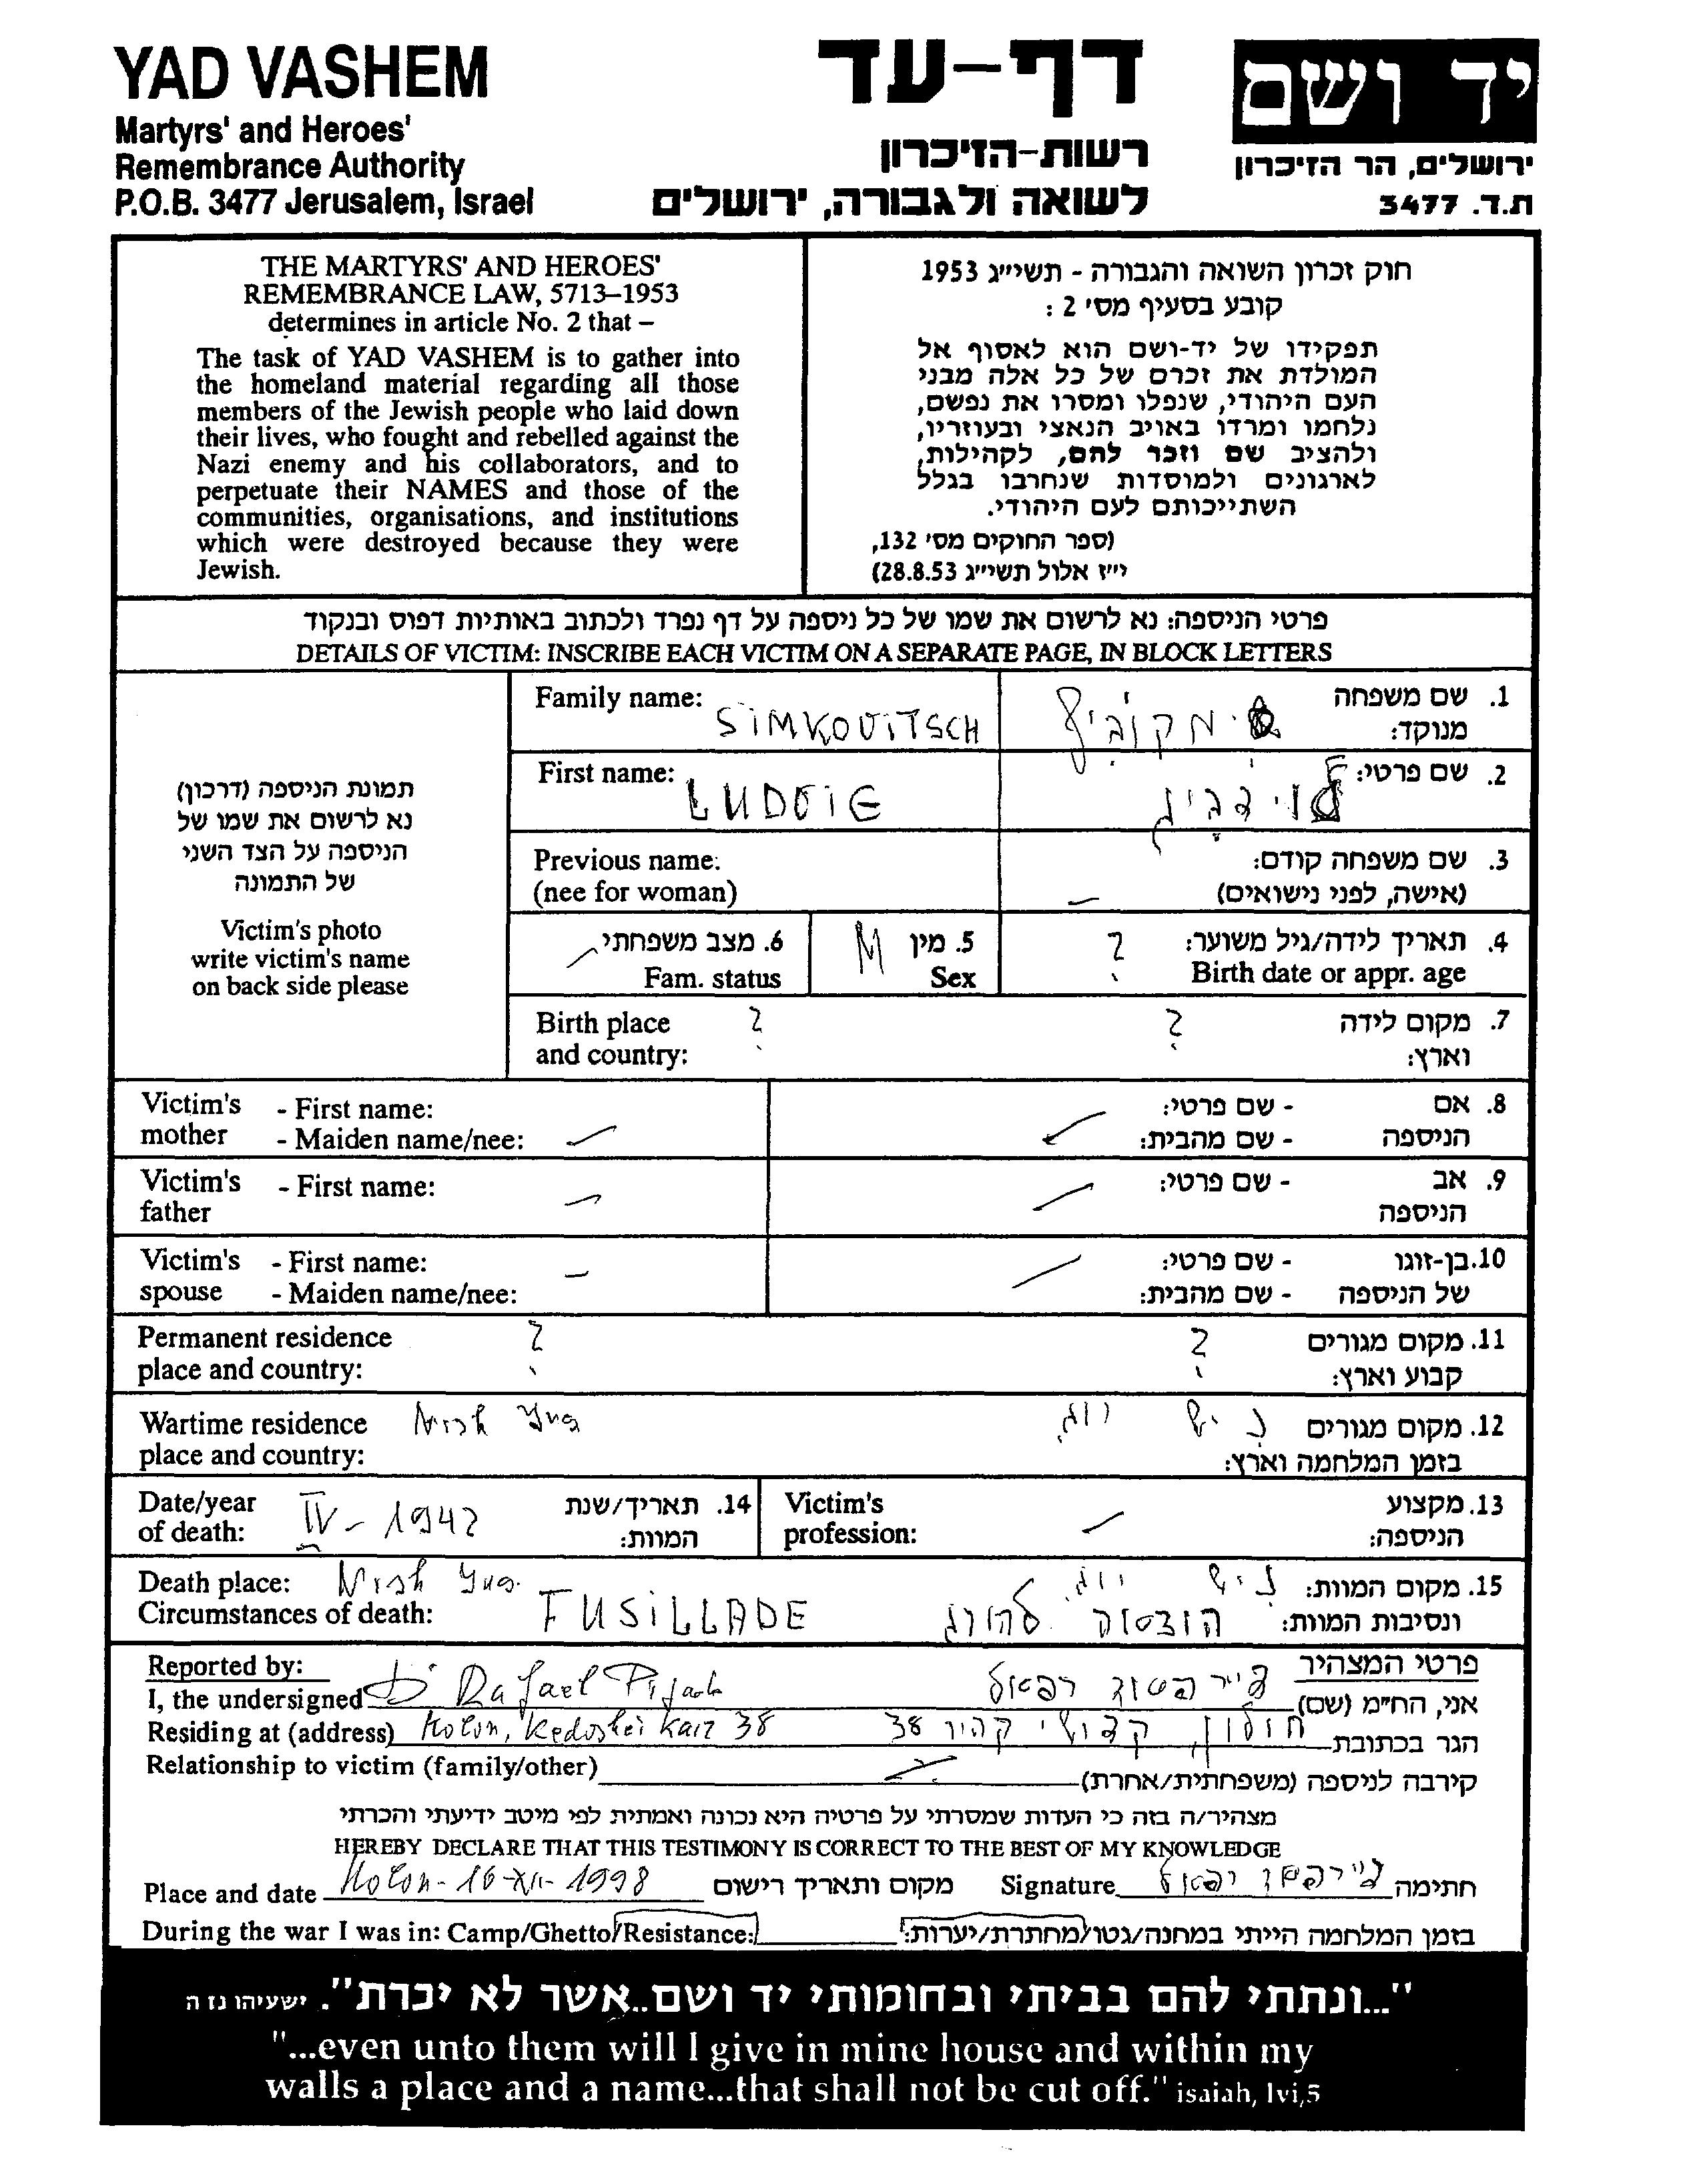 YAD VASHEM
Martyrs' and Heroes'
Remembrance Authority
P.O.B. 3477 Jerusalem, Israel
דף-עד
רשות-הזיכרון
לשואה ולגבורה, ירושלים
יד ושם
ירושלים, הר הזיכרון
ת.ד. 3477
THE MARTYRS' AND HEROES'
REMEMBRANCE LAW, 5713–1953
determines in article No. 2 that –
The task of YAD VASHEM is to gather into
the homeland material regarding all those
members of the Jewish people who laid down
their lives, who fought and rebelled against the
Nazi enemy and his collaborators, and to
perpetuate their NAMES and those of the
communities, organisations, and institutions
which were destroyed because they were
Jewish.
חוק זכרון השואה והגבורה - תשי״ג 1953
קובע בסעיף מס' 2 :
תפקידו של יד-ושם הוא לאסוף אל
המולדת את זכרם של כל אלה מבני
העם היהודי, שנפלו ומסרו את נפשם,
נלחמו ומרדו באויב הנאצי ובעוזריו,
ולהציב שם וזכר להם, לקהילות,
לארגונים ולמוסדות שנחרבו בגלל
השתייכותם לעם היהודי.
(ספר החוקים מס' 132,
י״ז אלול תשי״ג 28.8.53)
פרטי הניספה: נא לרשום את שמו של כל ניספה על דף נפרד ולכתוב באותיות דפוס ובנקוד
DETAILS OF VICTIM: INSCRIBE EACH VICTIM ON A SEPARATE PAGE, IN BLOCK LETTERS
תמונת הניספה (דרכון)
נא לרשום את שמו של
הניספה על הצד השני
של התמונה
Victim's photo
write victim's name
on back side please
Family name: SIMKOVITSCH
1. שם משפחה
מנוקד: שימקוביץ
First name: LUDVIG
2. שם פרטי: לודביג
Previous name:
(nee for woman)
3. שם משפחה קודם:
(אישה, לפני נישואים) –
6. מצב משפחתי
Fam. status
5. מין M
Sex
4. תאריך לידה/גיל משוער: ?
Birth date or appr. age
Birth place ?
and country:
7. מקום לידה ?
וארץ:
Victim's - First name:
mother - Maiden name/nee:
8. אם - שם פרטי:
הניספה - שם מהבית:
Victim's - First name:
father
9. אב - שם פרטי:
הניספה
Victim's - First name: –
spouse - Maiden name/nee:
10. בן-זוגו - שם פרטי:
של הניספה - שם מהבית:
Permanent residence ?
place and country:
11. מקום מגורים ?
קבוע וארץ:
Wartime residence Nish Yug
place and country:
12. מקום מגורים ניש יוג
בזמן המלחמה וארץ:
Date/year IV - 1942
of death:
14. תאריך/שנת
המוות:
Victim's
profession:
13. מקצוע
הניספה:
Death place: Nish Yug.
Circumstances of death: FUSILLADE
15. מקום המוות: ניש יוג
ונסיבות המוות: הוצאה להורג
Reported by:
I, the undersigned Dr Rafael Pijade
פרטי המצהיר
אני, הח״מ (שם) רפאל
Residing at (address) Holon, Kedoshei Kair 38
הגר בכתובת חולון, קדושי קהיר 38
Relationship to victim (family/other)
קירבה לניספה (משפחתית/אחרת)
מצהיר/ה בזה כי העדות שמסרתי על פרטיה היא נכונה ואמתית לפי מיטב ידיעתי והכרתי
HEREBY DECLARE THAT THIS TESTIMONY IS CORRECT TO THE BEST OF MY KNOWLEDGE
Place and date Holon - 16-XII- 1998 מקום ותאריך רישום
Signature רפאל חתימה
During the war I was in: Camp/Ghetto/Resistance:
בזמן המלחמה הייתי במחנה/גטו/מחתרת/יערות:
"...ונתתי להם בביתי ובחומותי יד ושם..אשר לא יכרת". ישעיהו נז ה
"...even unto them will I give in mine house and within my
walls a place and a name...that shall not be cut off." isaiah, lvi,5